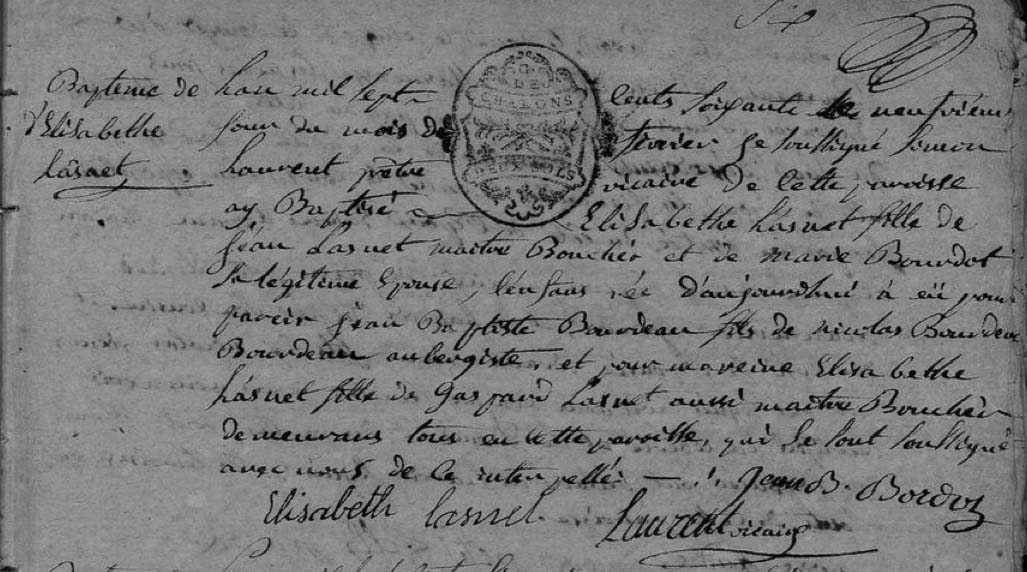 Six
Bapteme de
d'Elisabethe
Lasnet
G. DE
CHALONS
DEUX SOLS
Lan mil sept cents soixante le neufvieme
jour du mois de fevrier je soussigné simon
Laurent prêtre vicaire de cette paroisse
ay Baptisé Elisabethe Lasnet fille de
jean Lasnet maitre Boucher et de marie Bourdot
sa légitime Epouse, l'enfans née d'aujourdhui à eü pour
parein jean Baptiste Bourdeau fils de nicolas Bourdeau
Bourdeau aubergiste, et pour mareine Elisabethe
Lasnet fille de Gaspard Lasnet aussi maitre Boucher
demeurans tous en cette paroisse, qui se sont soussigné
avec nous de ce interpellés Jean B. Bordot
Elisabeth Lasnel Laurent vicaire